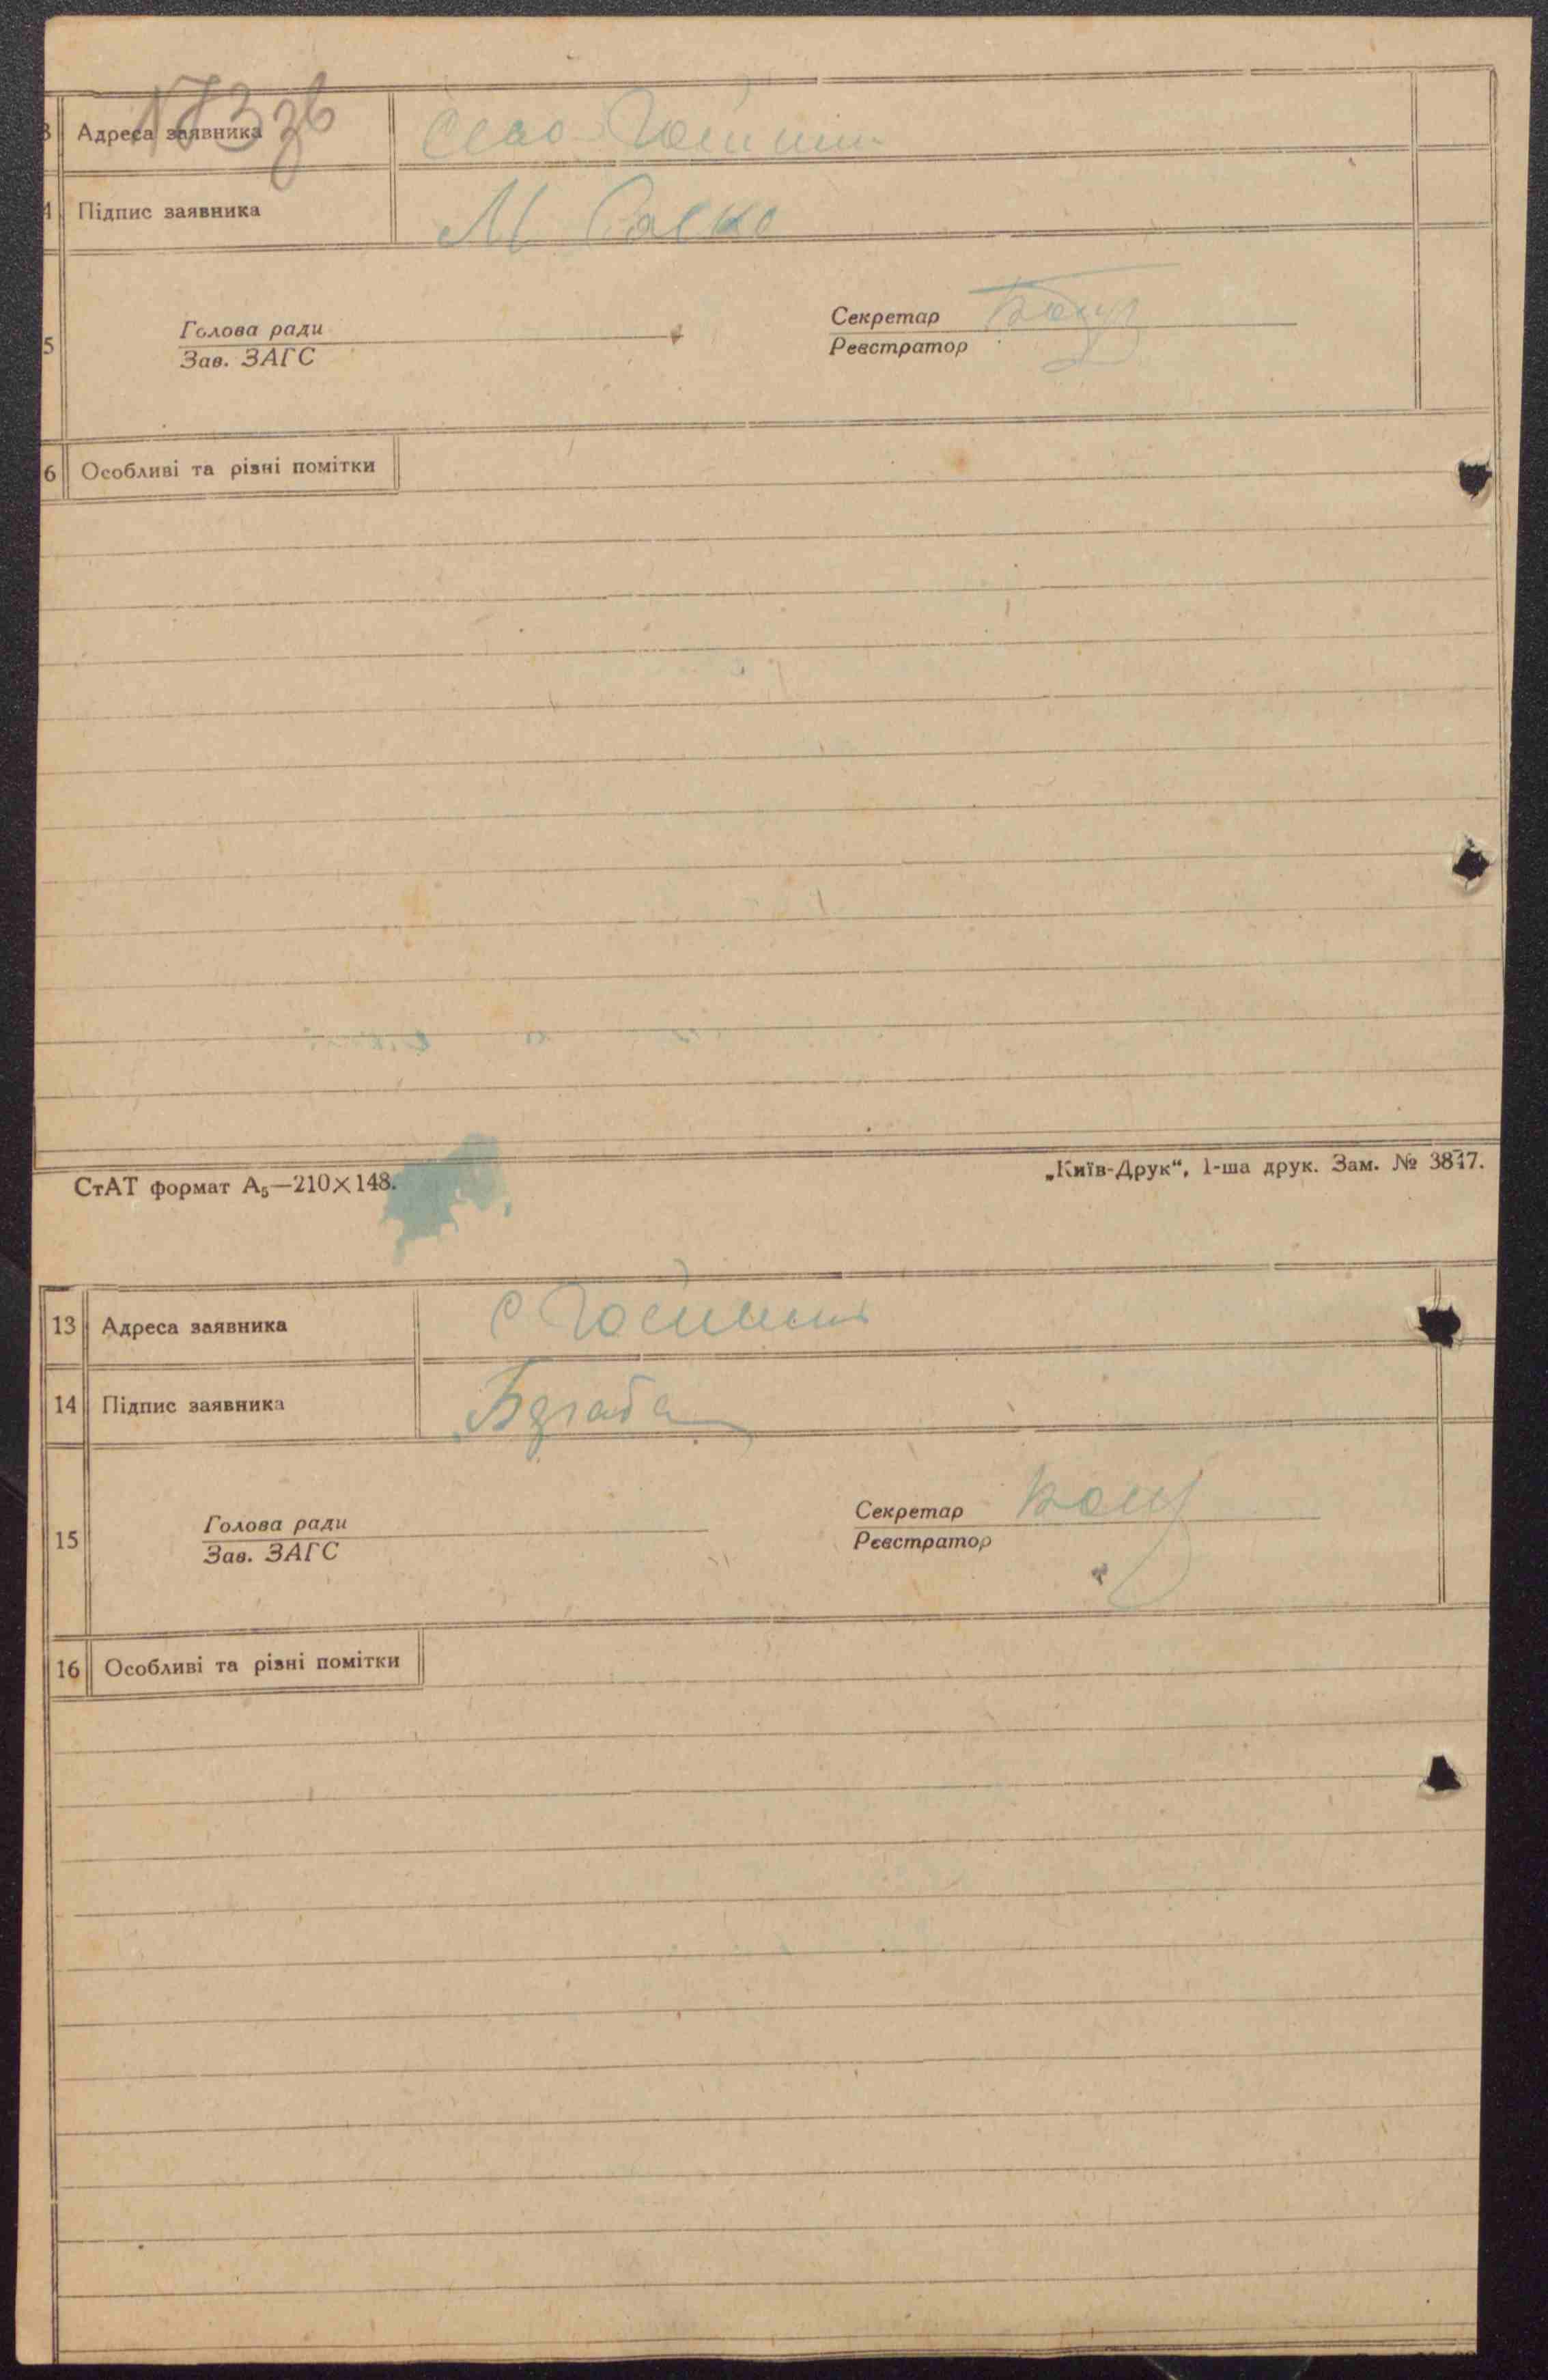 173 зв
3 Адреса заявника Село
4 Підпис заявника М
Голова ради Секретар
5 Зав. ЗАГС Реєстратор
6 Особливі та різні помітки
СтАТ формат А₅—210×148. „Київ-Друк“, 1-ша друк. Зам. № 3847.
13 Адреса заявника с
14 Підпис заявника
Голова ради Секретар
15 Зав. ЗАГС Реєстратор
16 Особливі та різні помітки